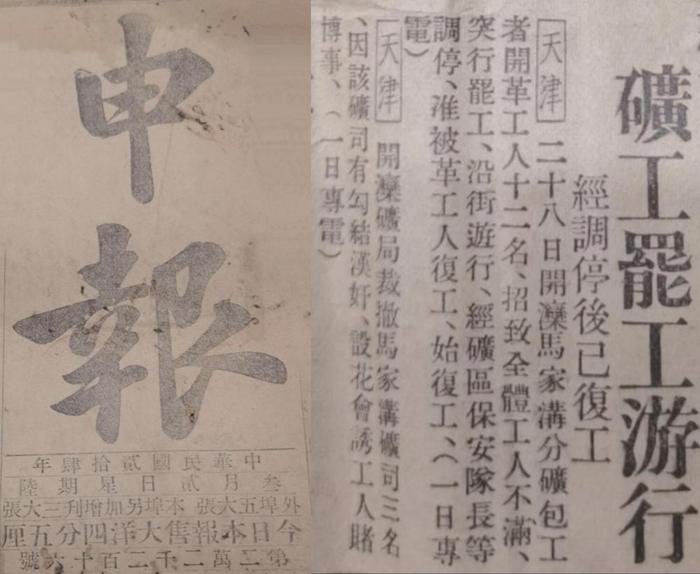 申報
中華民國貳拾肆年
叁月貳日星期陸
外埠五大張 本埠另加增刊三大張
今日本報售大洋四分五厘
第二萬二千二百十六號
礦工罷工游行
經調停後已復工
天津 二十八日開灤馬家溝分礦包工
者開革工人十二名、招致全體工人不滿、
突行罷工、沿街遊行、經礦區保安隊長等
調停、准被革工人復工、始復工、（一日專
電）
天津 開灤礦局裁撤馬家溝礦司三名
、因該礦司有勾結漢奸、設花會誘工人賭
博事、（一日專電）